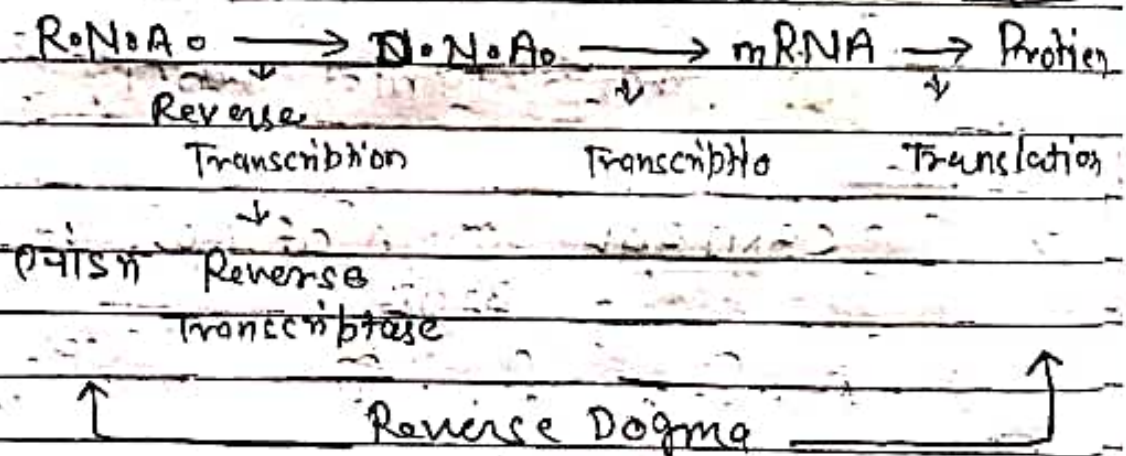 R.N.A. → D.N.A. → mRNA → Protien
Reverse
Transcribtion Transcribtio Translation
एंजाइम Reverse
Transcribtase
Reverse Dogma